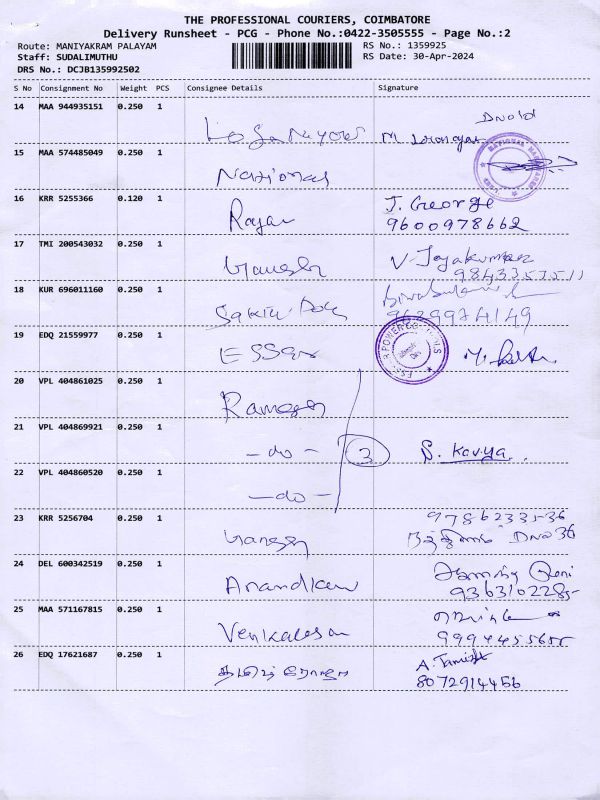 THE PROFESSIONAL COURIERS, COIMBATORE
Delivery Runsheet - PCG - Phone No.:0422-3505555 - Page No.:2
Route: MANIYAKRAM PALAYAM
RS No.: 1359925
Staff: SUDALIMUTHU
RS Date: 30-Apr-2024
DRS No.: DCJB135992502
S No Consignment No Weight PCS Consignee Details Signature
14 MAA 944935151 0.250 1
15 MAA 574485049 0.250 1 National
16 KRR 5255366 0.120 1 Rajan J. George
9600978662
17 TMI 200543032 0.250 1 Ganesh V. Jayakumar
18 KUR 696011160 0.250 1
9629974149
19 EDQ 21559977 0.250 1 ESSAR
20 VPL 404861025 0.250 1 Ramesh
21 VPL 404869921 0.250 1 -do- 3 S. Kavya
22 VPL 404860520 0.250 1 -do-
23 KRR 5256704 0.250 1 Ganesh 9786233536
DNo 36
24 DEL 600342519 0.250 1 Anandkumar
9363102285
25 MAA 571167815 0.250 1 Venkatesan
26 EDQ 17621687 0.250 1 A. Tamil
8072914456